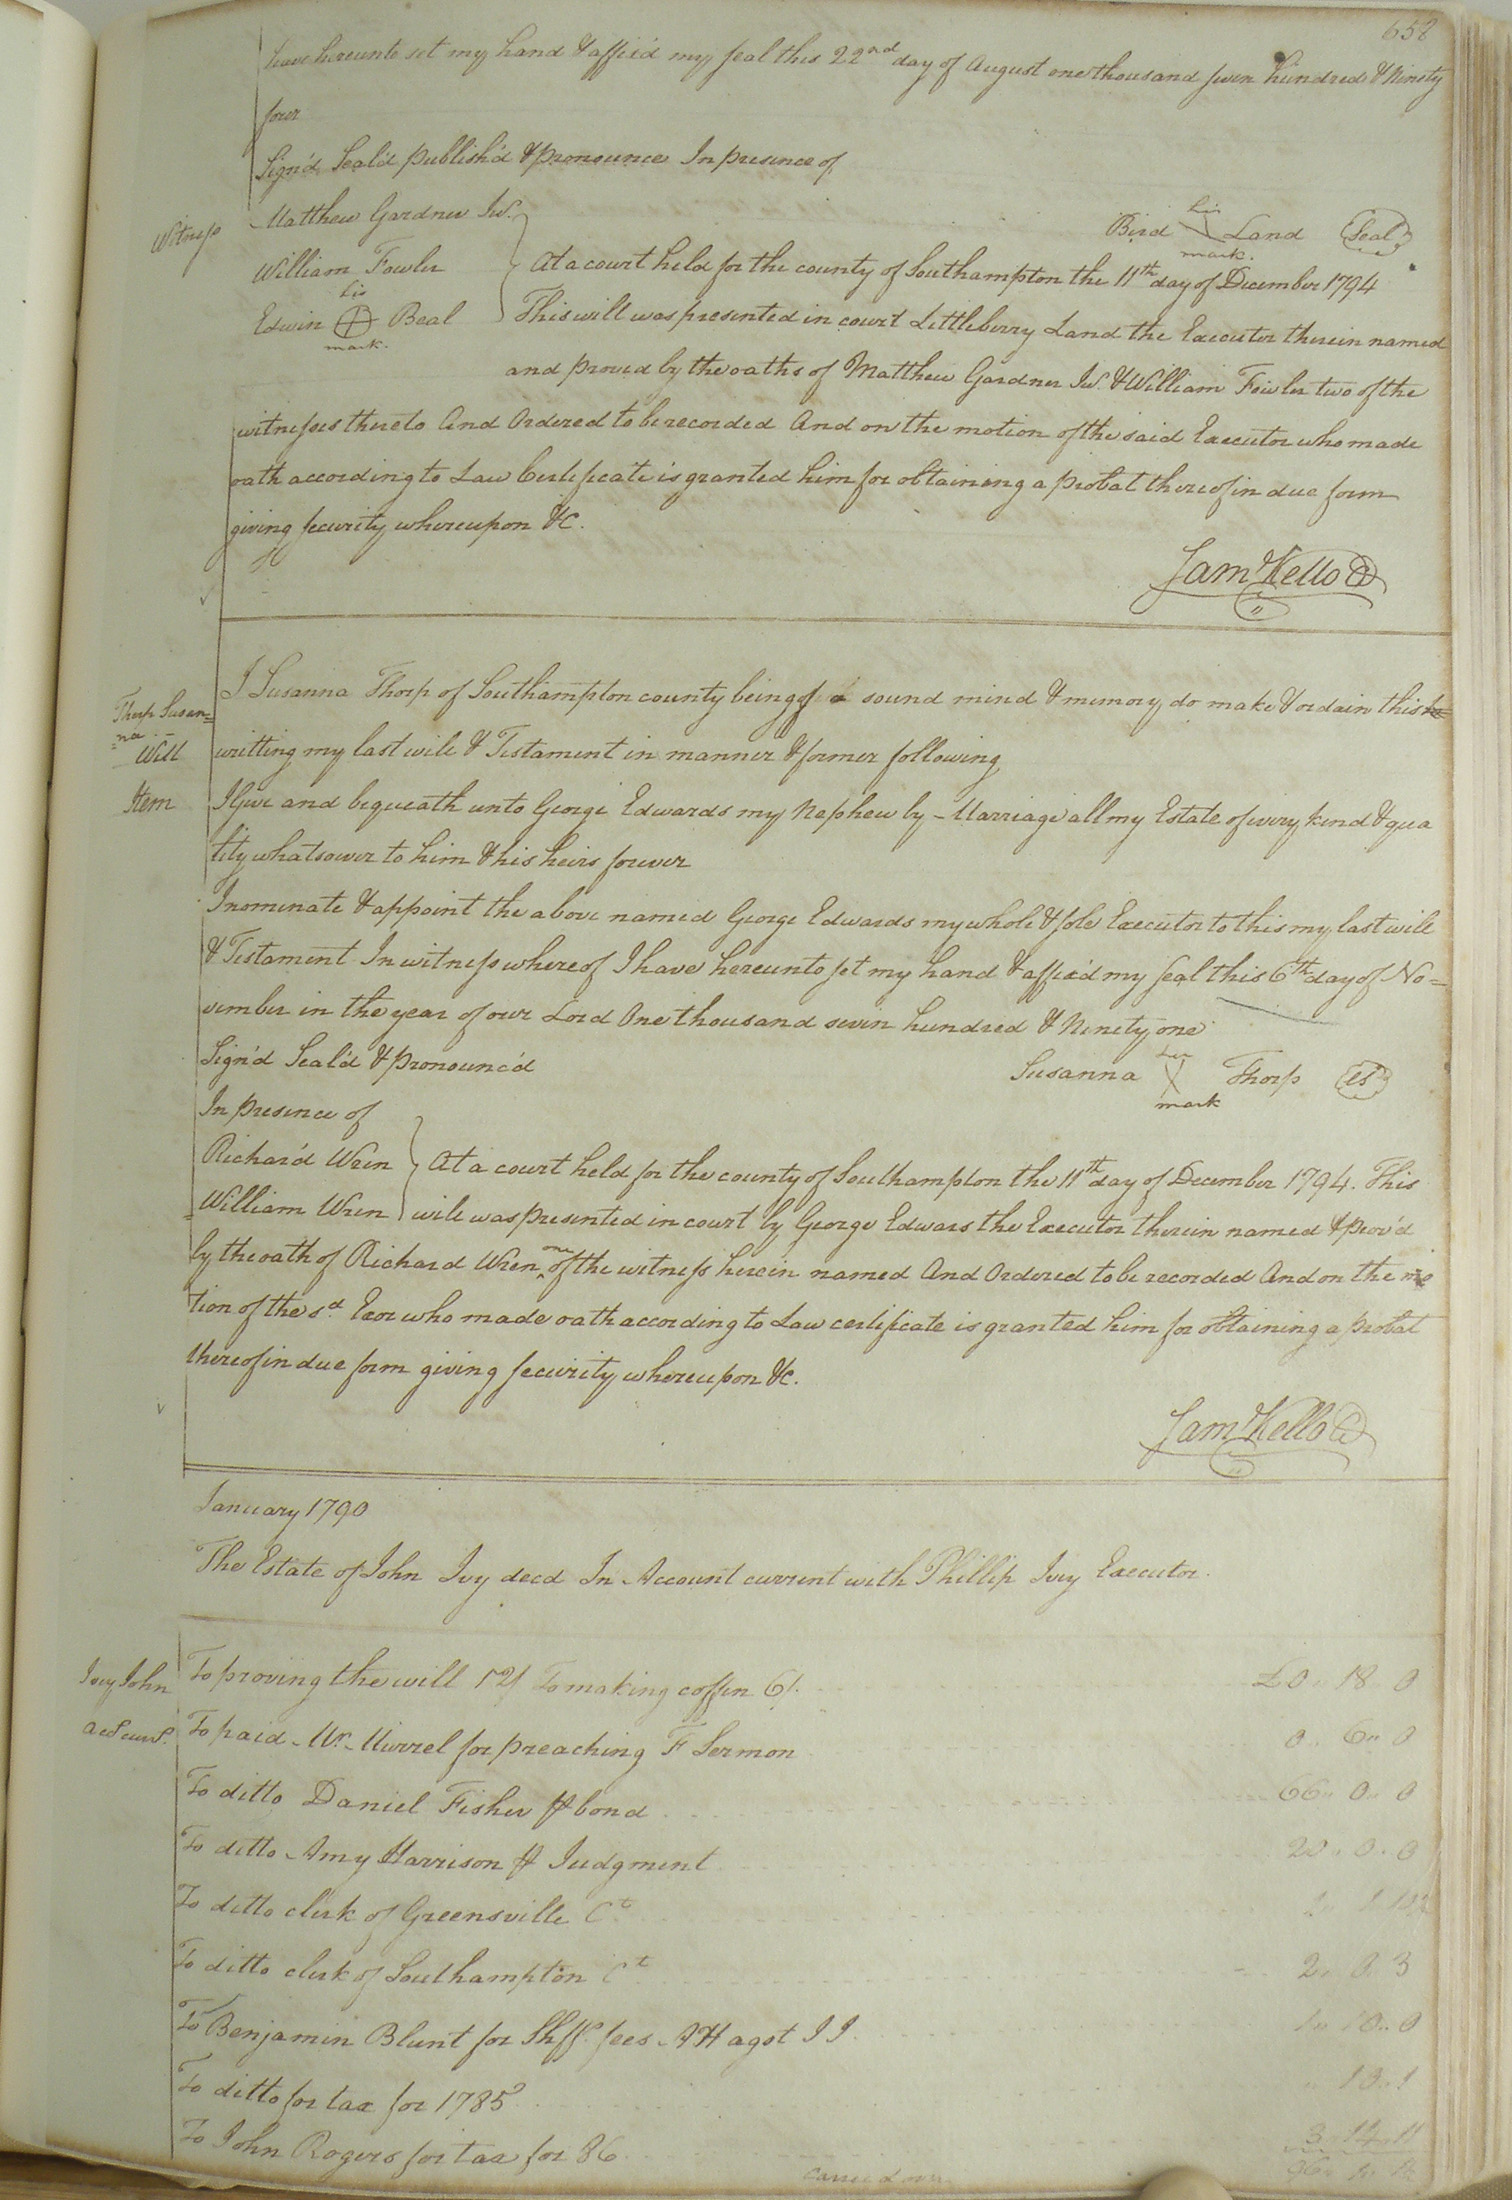 658
have hereunto set my hand & affix'd my seal this 22nd day of August one thousand seven hundred & Ninety
four
Sign'd Seal'd publish'd & pronounce In presence of
Witness Matthew Gardner Junr.
Bird his mark Land Seal
William Fowler
At a court held for the county of Southampton the 11th day of December 1794
Edwin his mark Beal
This will was presented in court Littleberry Land the Executor therein named
and proved by the oaths of Matthew Gardner Junr. & William Fowler two of the
witnesses thereto And Ordered to be recorded And on the motion of the said Executor who made
oath according to Law Certificate is granted him for obtaining a probat thereof in due form
giving security whereupon &c.
Saml Kello C
I Susanna Thorp of Southampton county being of a sound mind & memory do make & ordain this
Thorp Susan=
na
Will writting my last will & Testament in manner & former following
Item I Give and bequeath unto George Edwards my Nephew by Marriage all my Estate of every kind & qua
lity whatsoever to him & his heirs forever
I nominate & appoint the above named George Edwards my whole & sole Executor to this my last will
& Testament In witness whereof I have hereunto set my hand & affix'd my seal this 6th day of No=
vember in the year of our Lord One thousand seven hundred & Ninety one
Sign'd Seal'd & pronounc'd
Susanna her mark Thorp LS
In presence of
Richar'd Wren At a court held for the county of Southampton the 11th day of December 1794. This
William Wren will was presented in court by George Edwars the Executor therein named & prov'd
by the oath of Richard Wren one of the witness herein named And Ordered to be recorded And on the mo
tion of the sd. Exor who made oath according to Law certificate is granted him for obtaining a probat
thereof in due form giving security whereupon &c.
Saml Kello C
January 1790
The Estate of John Ivy decd In Account current with Phillip Ivy Executor.
Ivy John To proving the will 12/ To making coffin 6/. £0.. 18.. 0
acct curt. To paid Mr. Murrel for preaching F Sermon 0.. 6.. 0
To ditto Daniel Fisher ⅌ bond 66.. 0.. 0
To ditto Amy Harrison ⅌ Judgment 20.. 0.. 0
To ditto clerk of Greensville Ct
To ditto clerk of Southampton Ct 2.. 0.. 3
To Benjamin Blunt for Shff fees AH agst II 1.. 10.. 0
To ditto for tax for 1785
To John Rogers for tax for 86
carried over